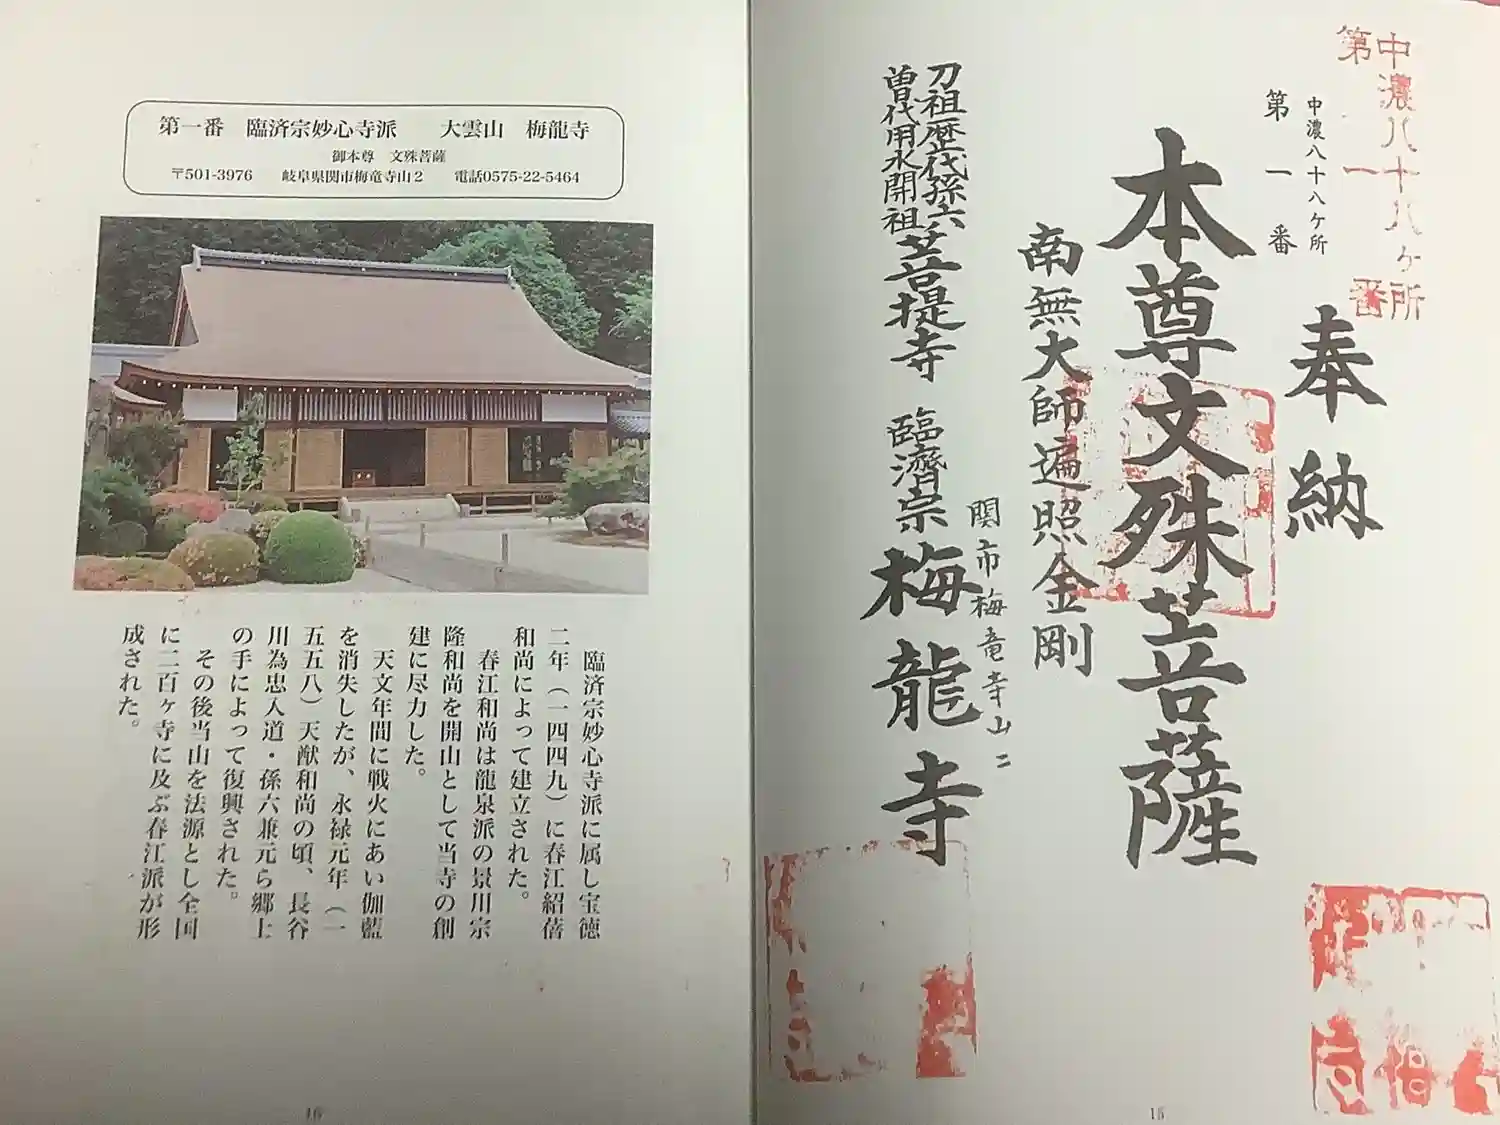 中濃八十八ヶ所
第一番
中濃八十八ヶ所
第一番
奉納
本尊文殊菩薩
南無大師遍照金剛
関市梅竜寺山二
刀祖歴代孫六
曽代用水開祖
菩提寺 臨濟宗 梅龍寺
15
第一番 臨済宗妙心寺派 大雲山 梅龍寺
御本尊 文殊菩薩
〒501-3976 岐阜県関市梅竜寺山2 電話0575-22-5464
臨済宗妙心寺派に属し宝徳
二年(一四四九)に春江紹蓓
和尚によって建立された。
春江和尚は龍泉派の景川宗
隆和尚を開山として当寺の創
建に尽力した。
天文年間に戦火にあい伽藍
を消失したが、永禄元年(一
五五八)天猷和尚の頃、長谷
川為忠入道・孫六兼元ら郷土
の手によって復興された。
その後当山を法源とし全国
に二百ヶ寺に及ぶ春江派が形
成された。
16